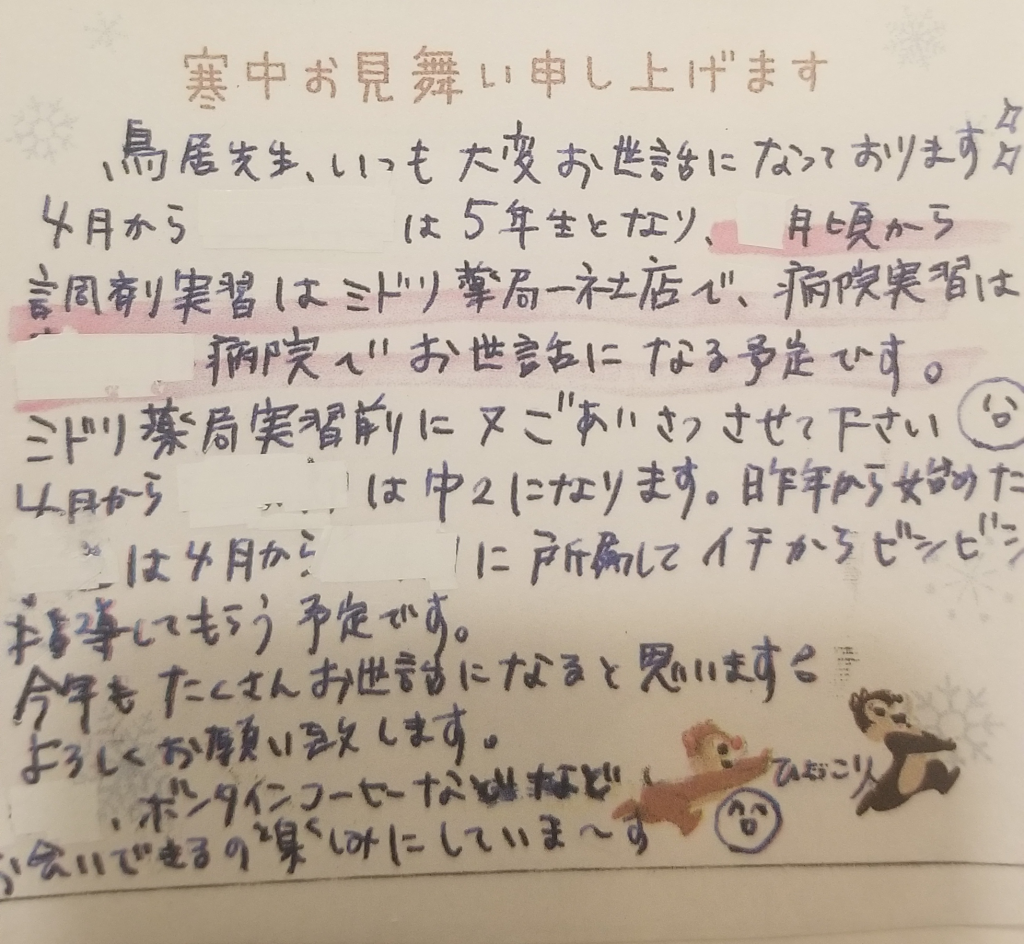 寒中お見舞い申し上げます
鳥居先生、いつも大変お世話になっております
4月から は5年生となり、 月頃から
調剤実習はミドリ薬局一社店で、病院実習は
病院でお世話になる予定です。
ミドリ薬局実習前に又ごあいさつさせて下さい
4月から は中2になります。昨年から始めた
は4月から に所属してイチからビシビシ
指導してもらう予定です。
今年もたくさんお世話になると思います
よろしくお願い致します。
、ボンタインコーヒーなど など ひょっこり
お会いできるの楽しみにしていま〜す